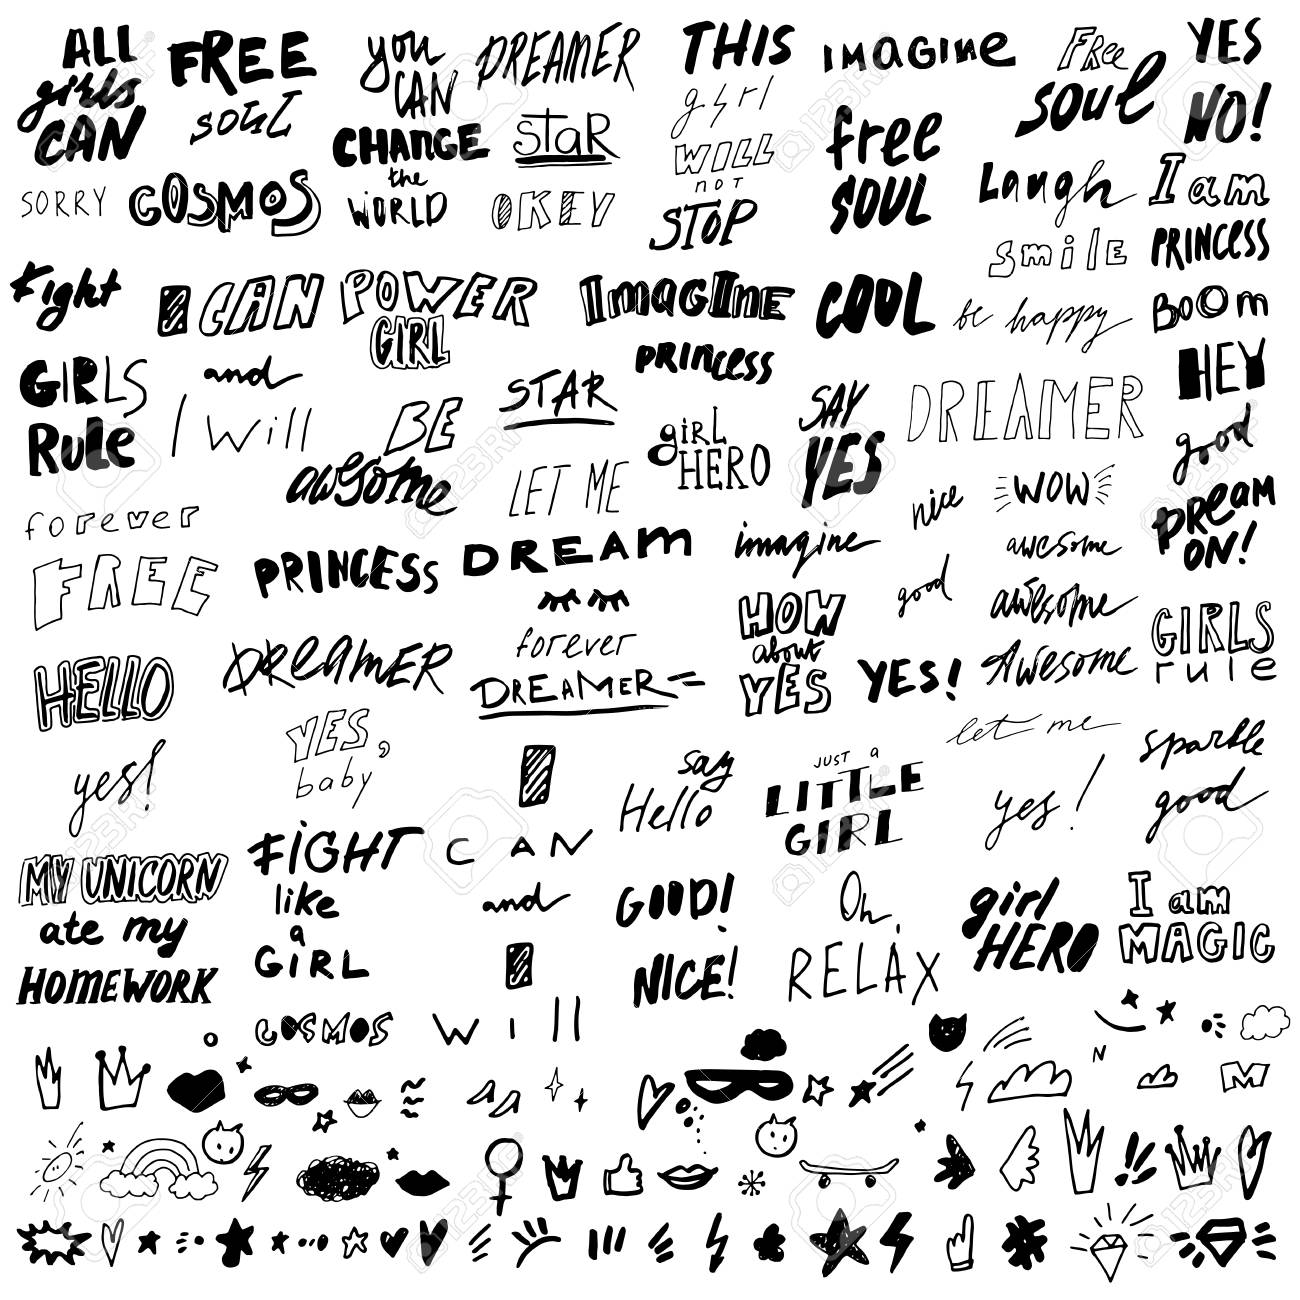 ALL
girls
CAN
FREE
SOUL
you
CAN
CHANGE
the
WORLD
DREAMER
STAR
OKEY
THIS
girl
WILL
NOT
STOP
IMAGINE
free
SOUL
FREE
SOUL
YES
NO!
SORRY
COSMOS
Laugh
smile
be happy
I am
PRINCESS
BOOM
HEY
good
DREAM
ON!
Fight
I CAN
POWER
GIRL
IMAGINE
PRINCESS
COOL
GIRLS
RULE
and
I will
BE
awesome
STAR
LET ME
girl
HERO
SAY
YES
DREAMER
nice
WOW
awesome
good
awesome
Awesome
forever
FREE
PRINCESS
DREAM
forever
DREAMER
imagine
HOW
about
YES
YES!
GIRLS
rule
HELLO
DREAMER
YES,
baby
yes!
I
CAN
and
I
will
say
Hello
JUST a
LITTLE
GIRL
let me
yes!
sparkle
good
MY UNICORN
ate my
HOMEWORK
FIGHT
like
a
GIRL
COSMOS
GOOD!
NICE!
Oh,
RELAX
girl
HERO
I am
MAGIC
123RF